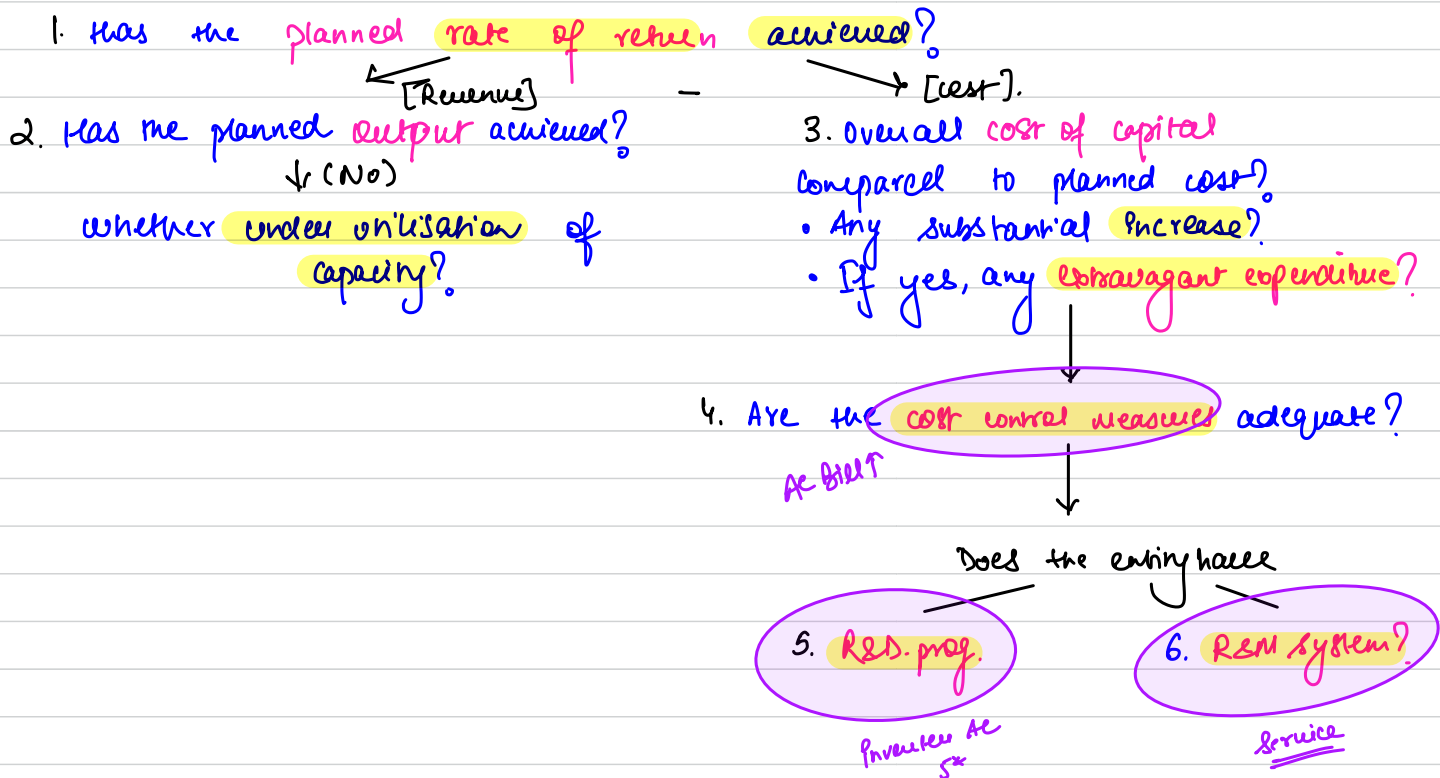 1. Has the planned rate of return achieved?
[Revenue] - [cost].
2. Has the planned output achieved?
↓ (No)
whether under utilisation of
capacity?
3. Overall cost of capital
compared to planned cost?
• Any substantial increase?
• If yes, any extravagant expenditure?
4. Are the cost control measures adequate?
AC Bill↑
Does the entity have
5. R&D. prog.
6. R&M system?
Inverter AC
5*
Service